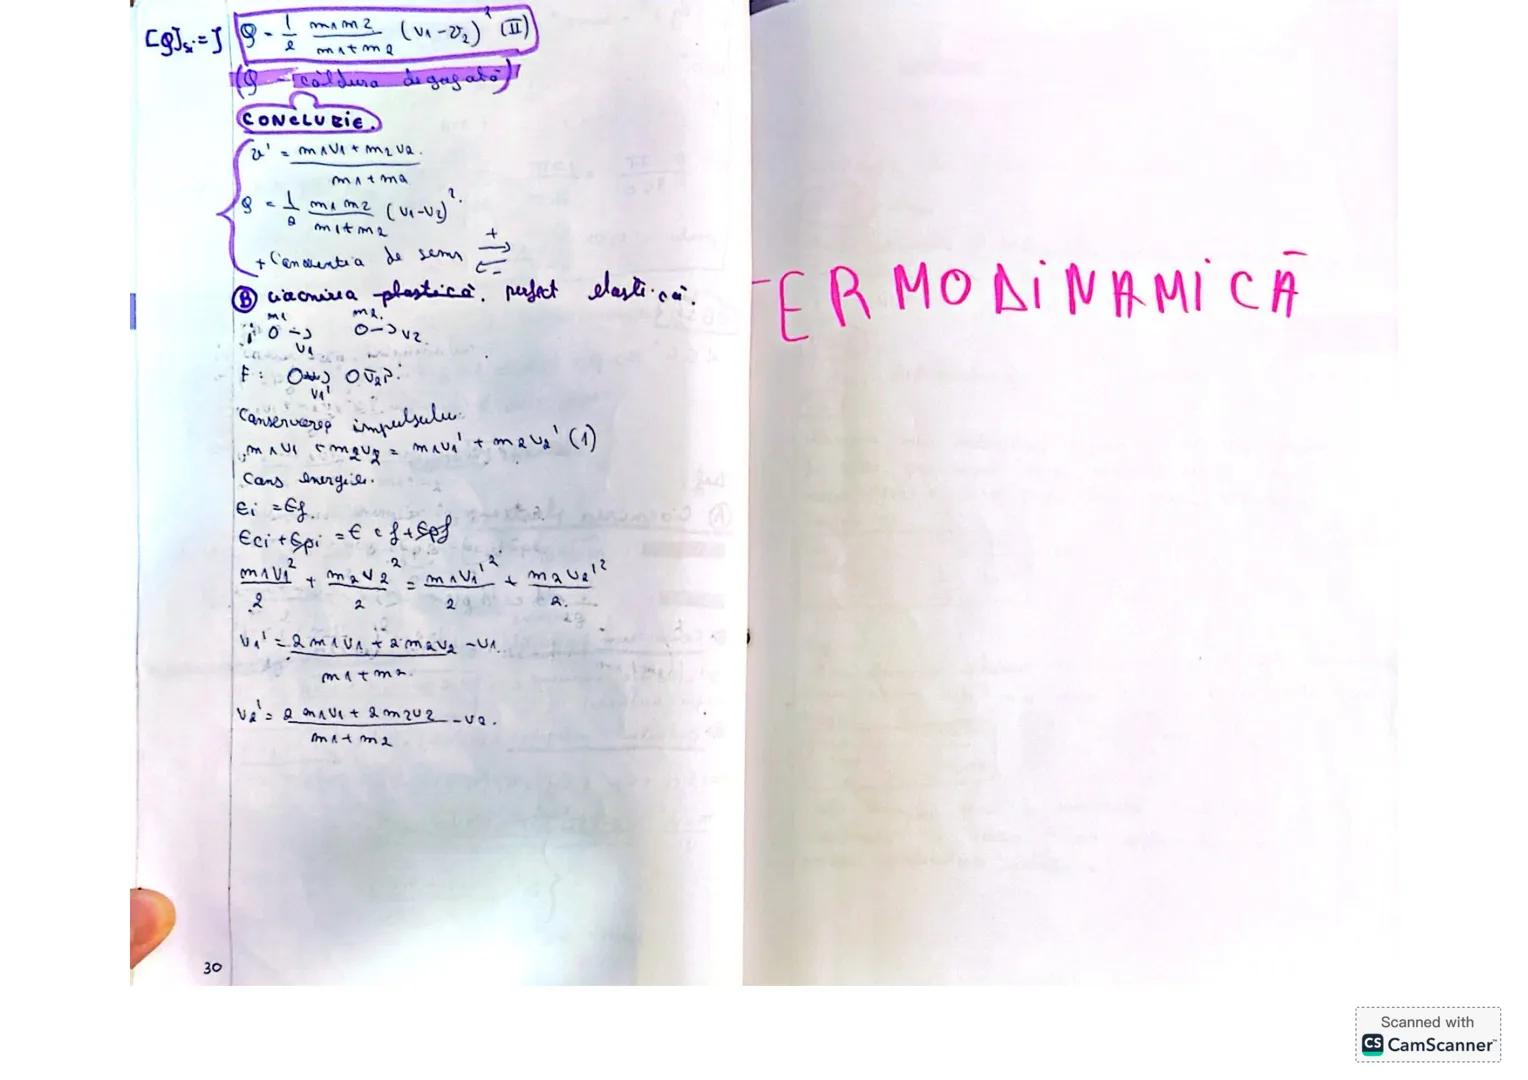 [Q]SI = J Q = 1/2 m1m2/(m1+m2) (v1-v2)² (II)
(Q - căldura degajată)
CONCLUZIE.
v' = (m1v1 + m2v2)/(m1+m2)
Q = 1/2 m1m2/(m1+m2) (v1-v2)².
+ Convenția de semn + → ← -
B ciocnirea plastică. perfect elastică.
m1 m2.
i: O → v1 O → v2
F: O → v1' O v2'
Conservarea impulsului
m1v1 + m2v2 = m1v1' + m2v2' (1)
Cons energiei.
Ei = Ef.
Eci + Epi = Ecf + Epf
m1v1²/2 + m2v2²/2 = m1v1'²/2 + m2v2'²/2.
v1' = (2m1v1 + 2m2v2)/(m1+m2) - v1.
v2' = (2m1v1 + 2m2v2)/(m1+m2) - v2.
30
TERMODINAMICĂ
Scanned with
CS CamScanner